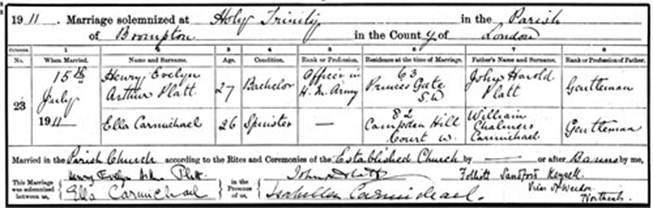 1911. Marriage solemnized at Holy Trinity in the Parish
of Brompton in the County of London
Columns. 1 2 3 4 5 6 7 8
No. When Married. Name and Surname. Age. Condition. Rank or Profession. Residence at the time of Marriage. Father's Name and Surname. Rank or Profession of Father.
23 15th July 1911 Henry Evelyn Arthur Platt 27 Bachelor Officer in H. M. Army 63 Princes Gate S.W John Harold Platt Gentleman
Ella Carmichael 26 Spinster — 82 Campden Hill Court W. William Chalmers Carmichael Gentleman
Married in the Parish Church according to the Rites and Ceremonies of the Established Church by — or after Banns by me,
This Marriage was solemnized between us, Henry Evelyn Arth. Platt in the Presence of us, John H Platt Follitt Sandford
Ella Carmichael Isabella Carmichael. Vicar of Weedon Northants.